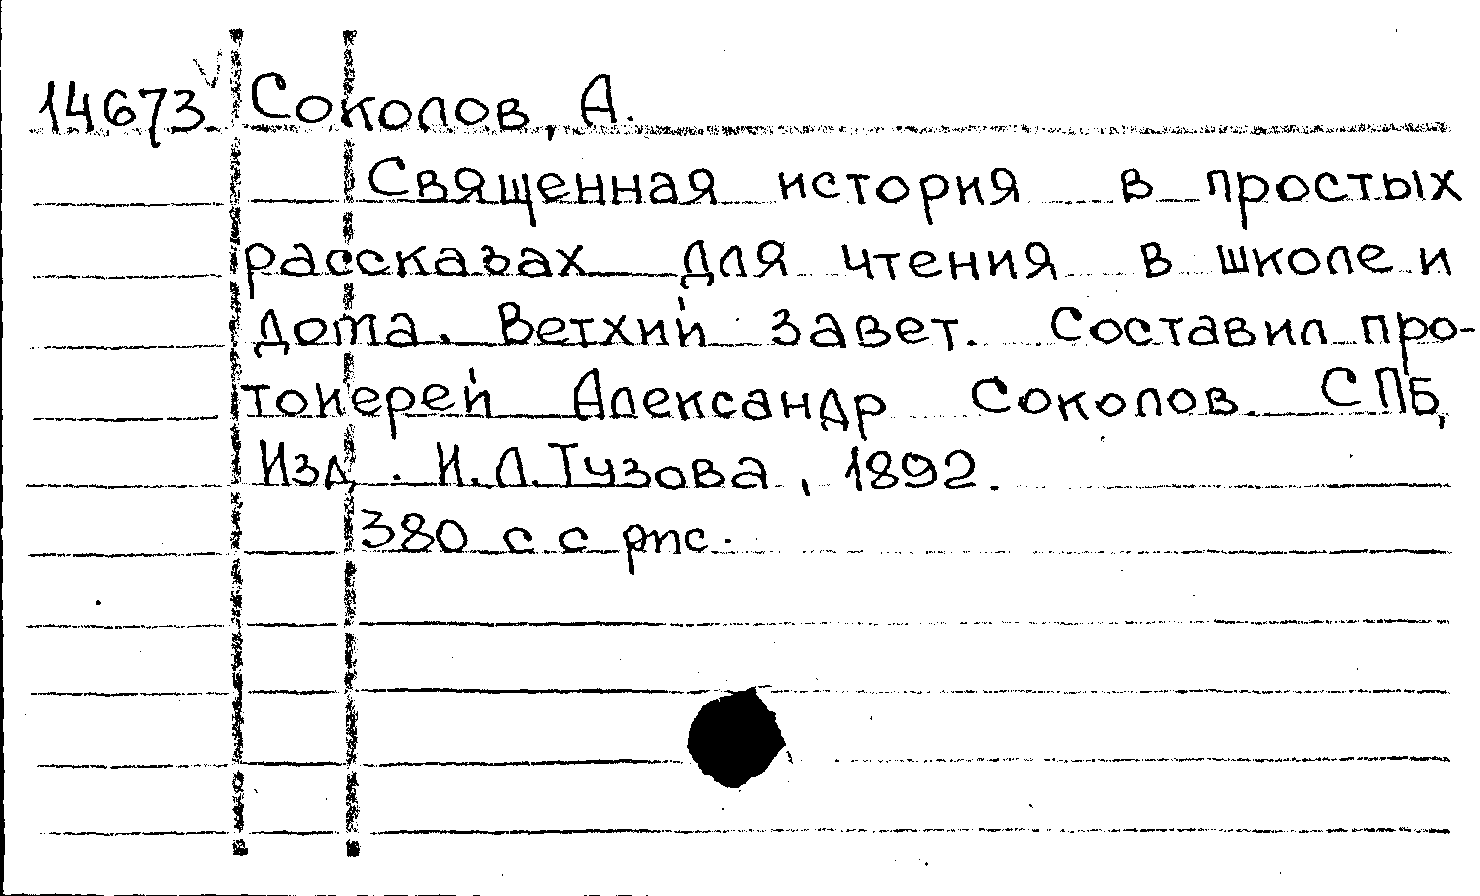 14673 Соколов, А.
Священная история в простых
рассказах для чтения в школе и
дома. Ветхий завет. Составил про-
тоиерей Александр Соколов СПБ,
Изд. И.Л.Тузова, 1892.
380 с с рис.